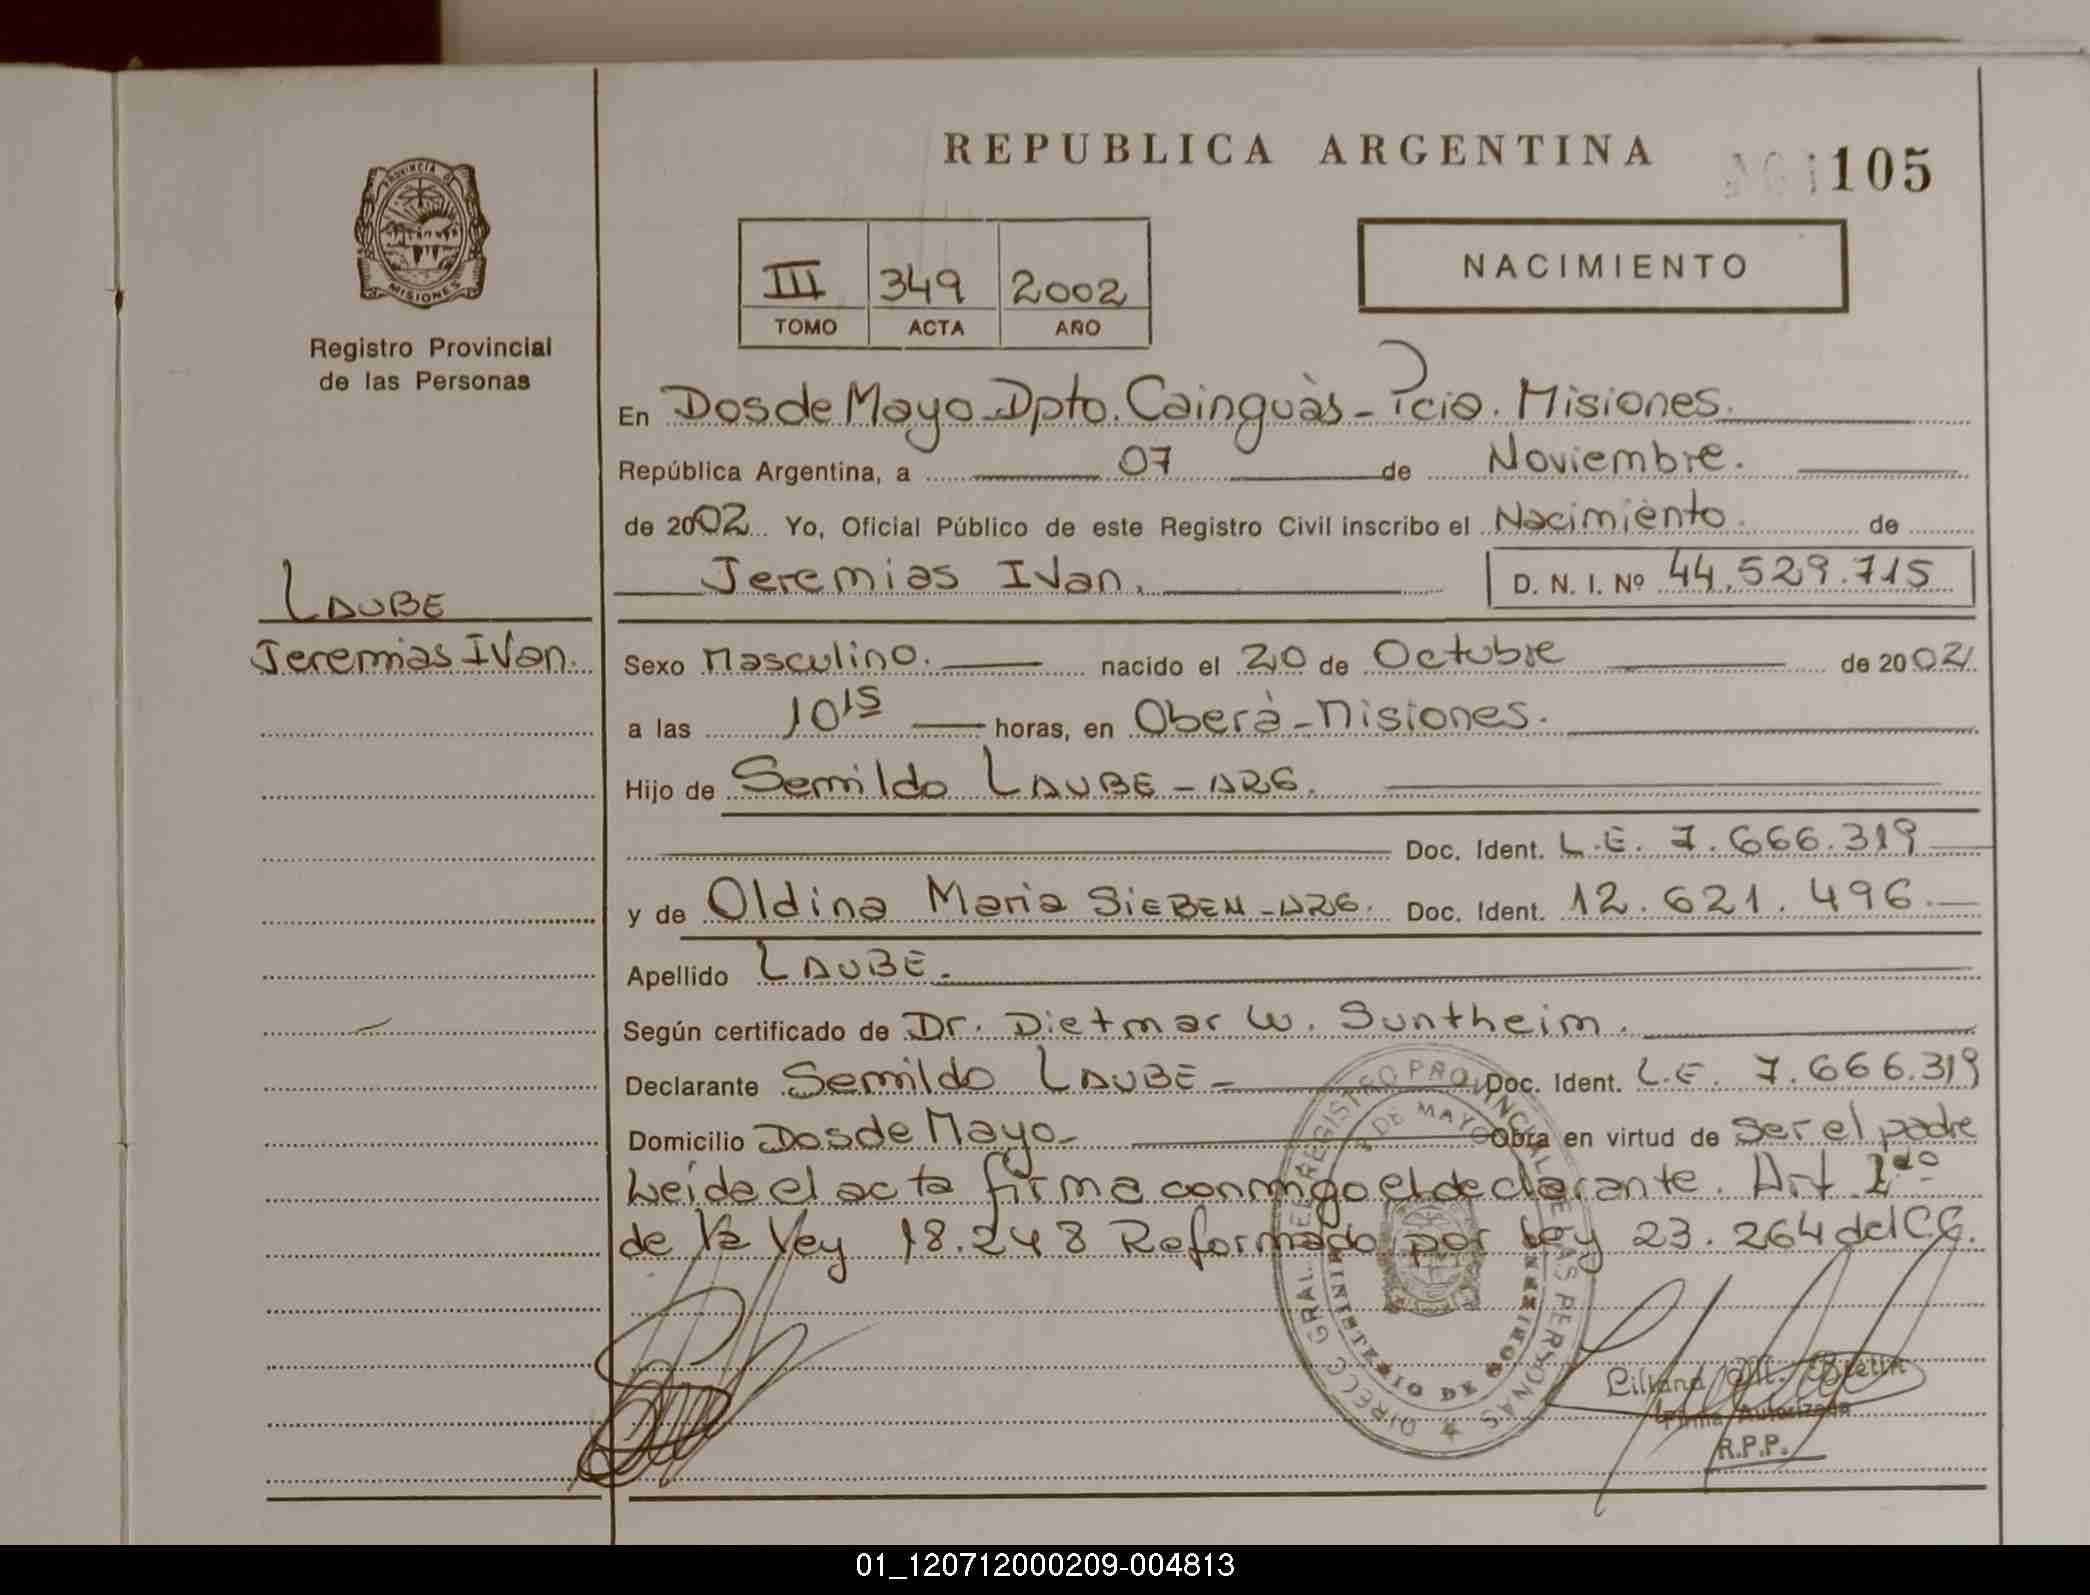 REPUBLICA ARGENTINA
105
PROVINCIA DE
MISIONES
Registro Provincial
de las Personas
III 349 2002
TOMO ACTA AÑO
NACIMIENTO
En Dos de Mayo - Dpto. Cainguàs - Pcia. Misiones.
República Argentina, a 07 de Noviembre.
de 2002 Yo, Oficial Público de este Registro Civil inscribo el Nacimiento. de
Jeremias Ivan. D. N. I. Nº 44.529.715
LAUBE
Jeremias Ivan.
Sexo Masculino. nacido el 20 de Octubre de 2002
a las 10 15 horas, en Oberà - Misiones.
Hijo de Semildo LAUBE - ARG.
Doc. Ident. L.E. 7.666.319
y de Oldina Maria SIEBEN - ARG. Doc. Ident. 12.621.496.
Apellido LAUBE.
Según certificado de Dr. Dietmar W. Suntheim.
Declarante Semildo LAUBE - Doc. Ident. L.E. 7.666.319
Domicilio Dos de Mayo - Obra en virtud de ser el padre
Leida el acta firma conmigo el declarante. Art 1do
de la Ley 18.248 Reformado por Ley 23.264 del CC.
DIRECC GRAL DE REGISTRO PROVINCIAL DE LAS PERSONAS
2 DE MAYO
MINISTERIO DE GOBIERNO
Liliana
Firma Autorizada
R.P.P.
01_120712000209-004813